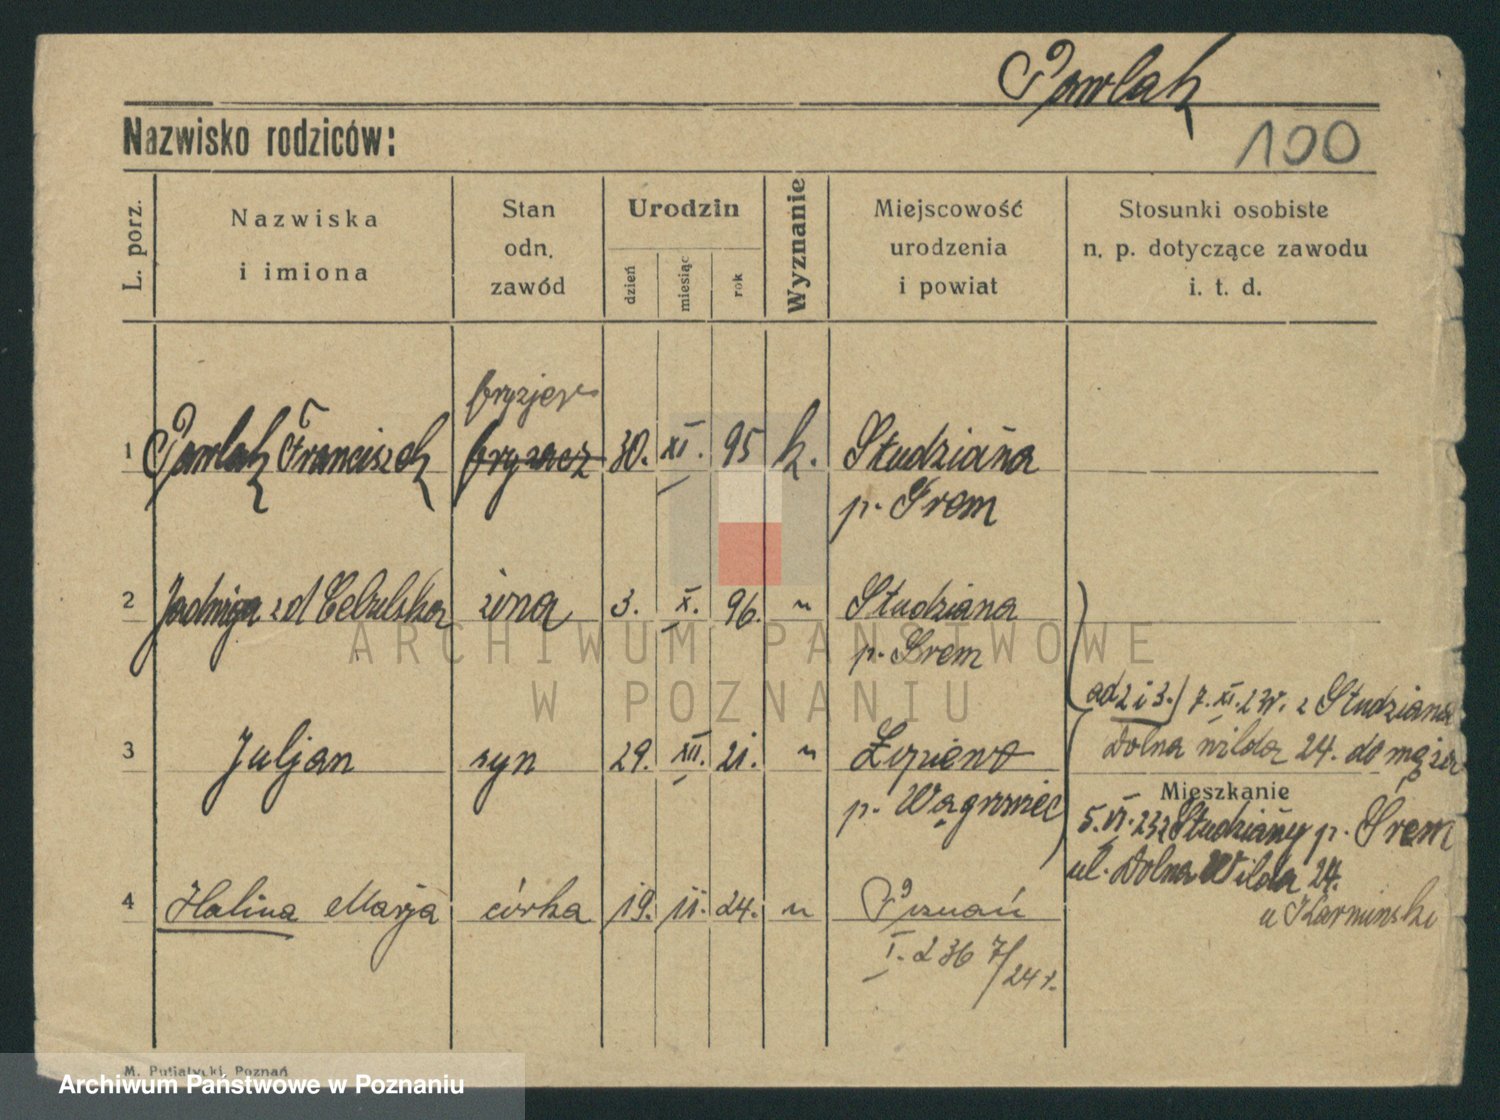 Pawlak
Nazwisko rodziców:
100
L. porz.
Nazwiska
i imiona
Stan
odn.
zawód
Urodzin
dzień
miesiąc
rok
Wyznanie
Miejscowość
urodzenia
i powiat
Stosunki osobiste
n. p. dotyczące zawodu
i. t. d.
fryzjer
1 Pawlak Franciszek fryzjer 30. XI. 95 k. Studziana
p. Śrem
2 Jadwiga zd Cebulska żona 3. X. 96. " Studziana
p. Śrem
ad 2 i 3.) 7. XI. 23r. z Studziana
Dolna wilda 24. do męża
3 Juljan syn 29. XII. 21. "
p. Wągrowiec
Mieszkanie
5. VI. 23 z Studziany p. Śrem
ul. Dolna Wilda 24.
u Karminski
4 Halina Marja córka 19. II. 24. " Poznań
I. 236 7/24 r.
M. Putiatycki, Poznań
ARCHIWUM PAŃSTWOWE
W POZNANIU
Archiwum Państwowe w Poznaniu